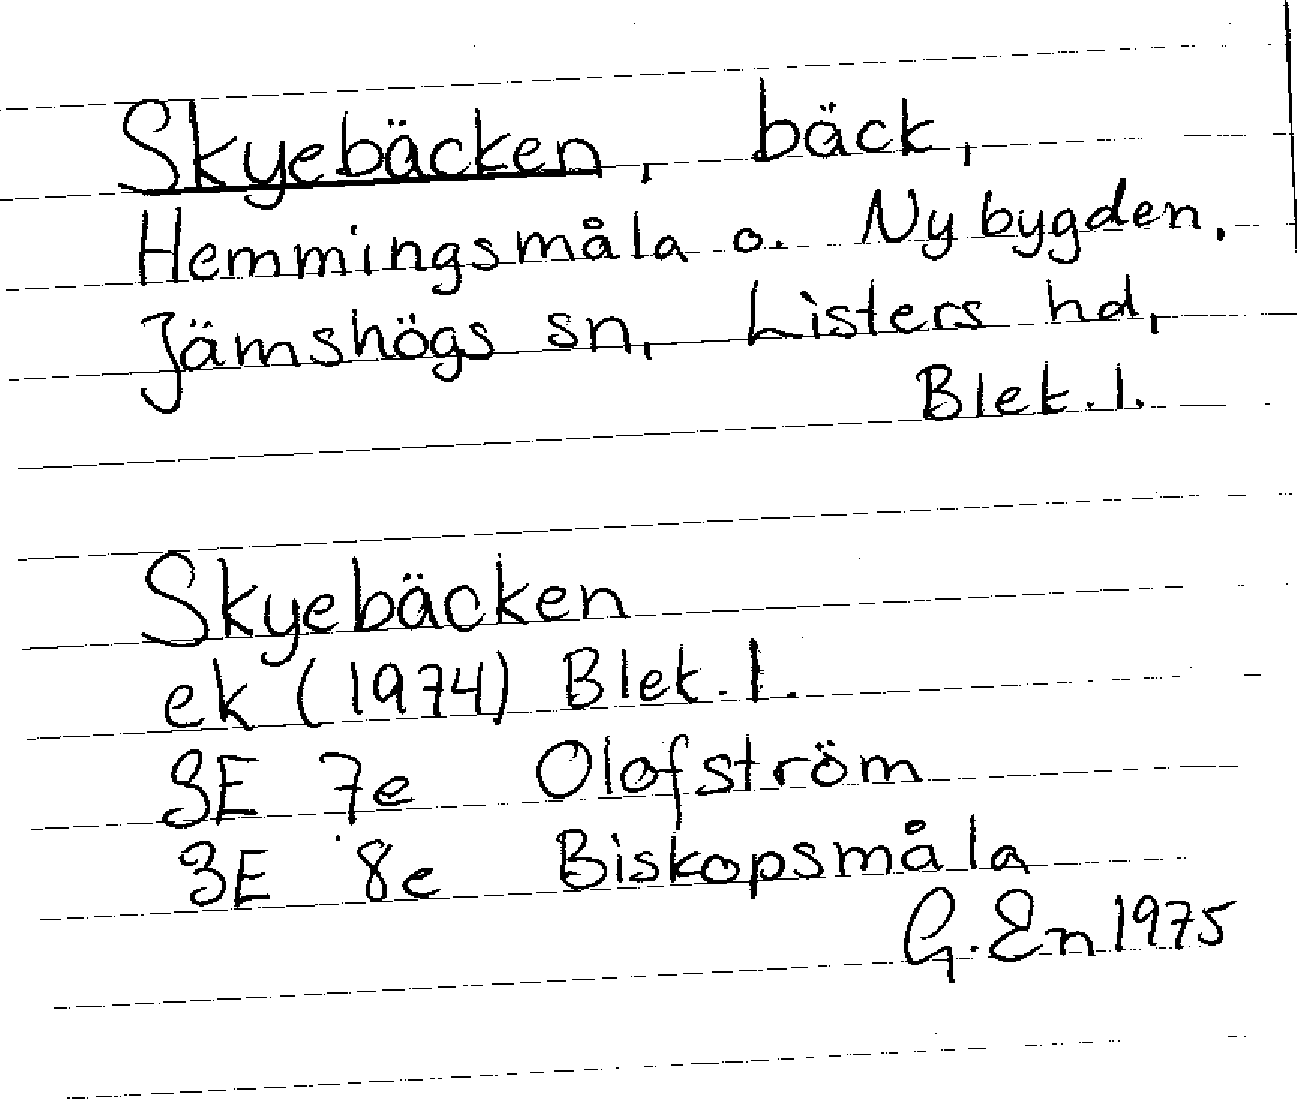 Skyebäcken, bäck,
Hemmingsmåla o. Nybygden.
Jämshögs sn, Listers hd,
Blek.l.
Skyebäcken
ek (1974) Blek.l.
3E 7e Olofström
3E 8e Biskopsmåla
G.En 1975